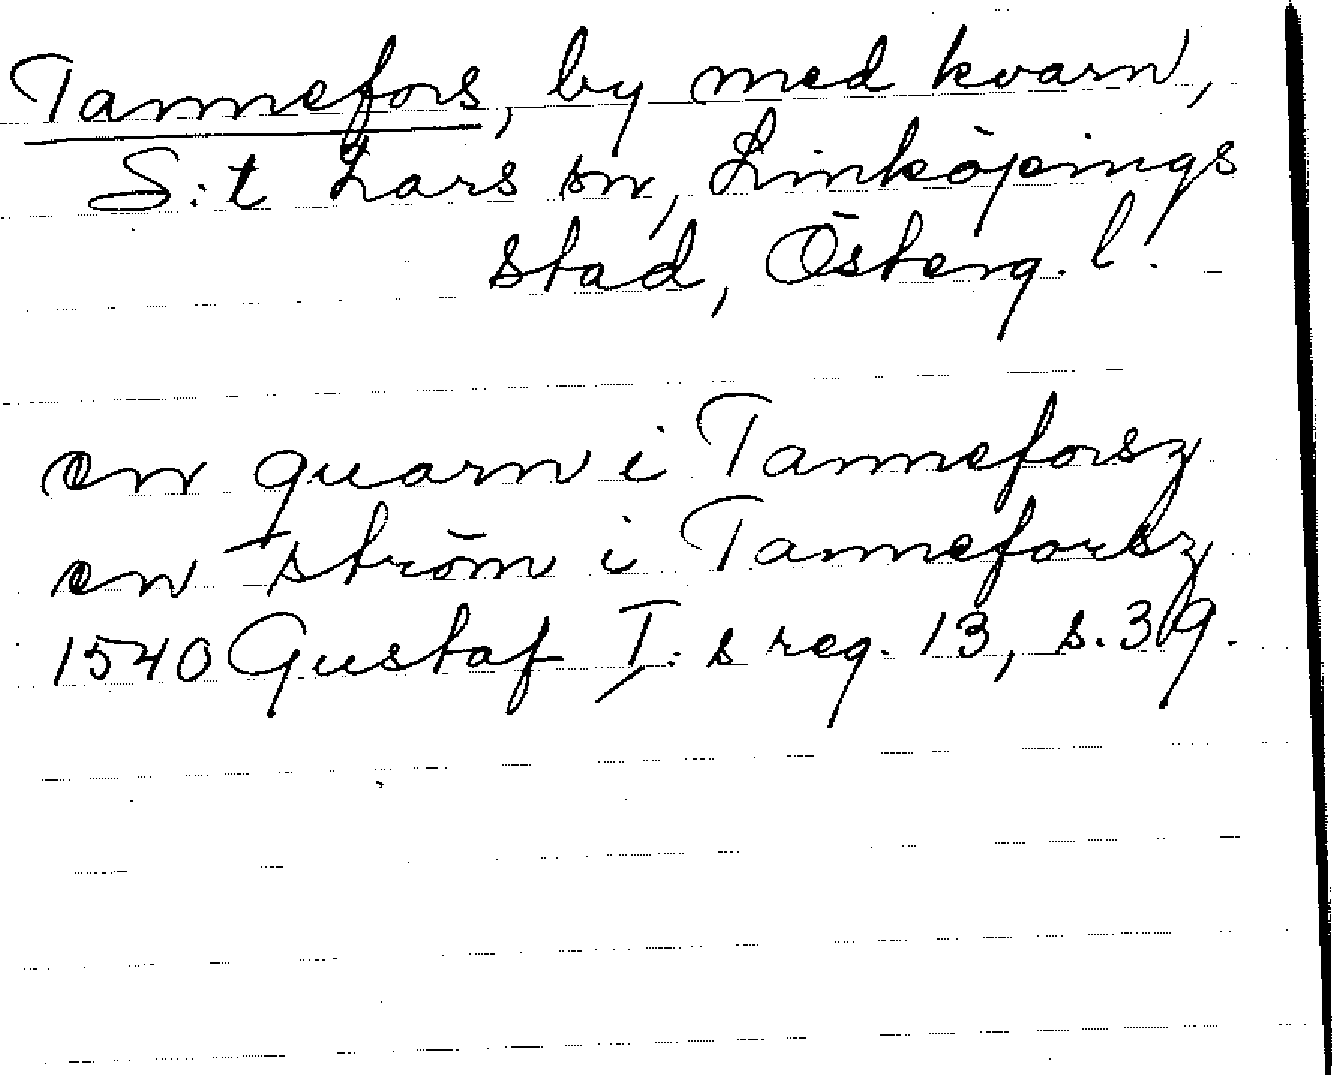 Tannefors, by med kvarn,
S:t Lars sn, Linköpings
stad, Österg. l.
en quarn i Tanneforsz
en ström i Tanneforsz
1540 Gustaf I:s reg. 13, s. 39.